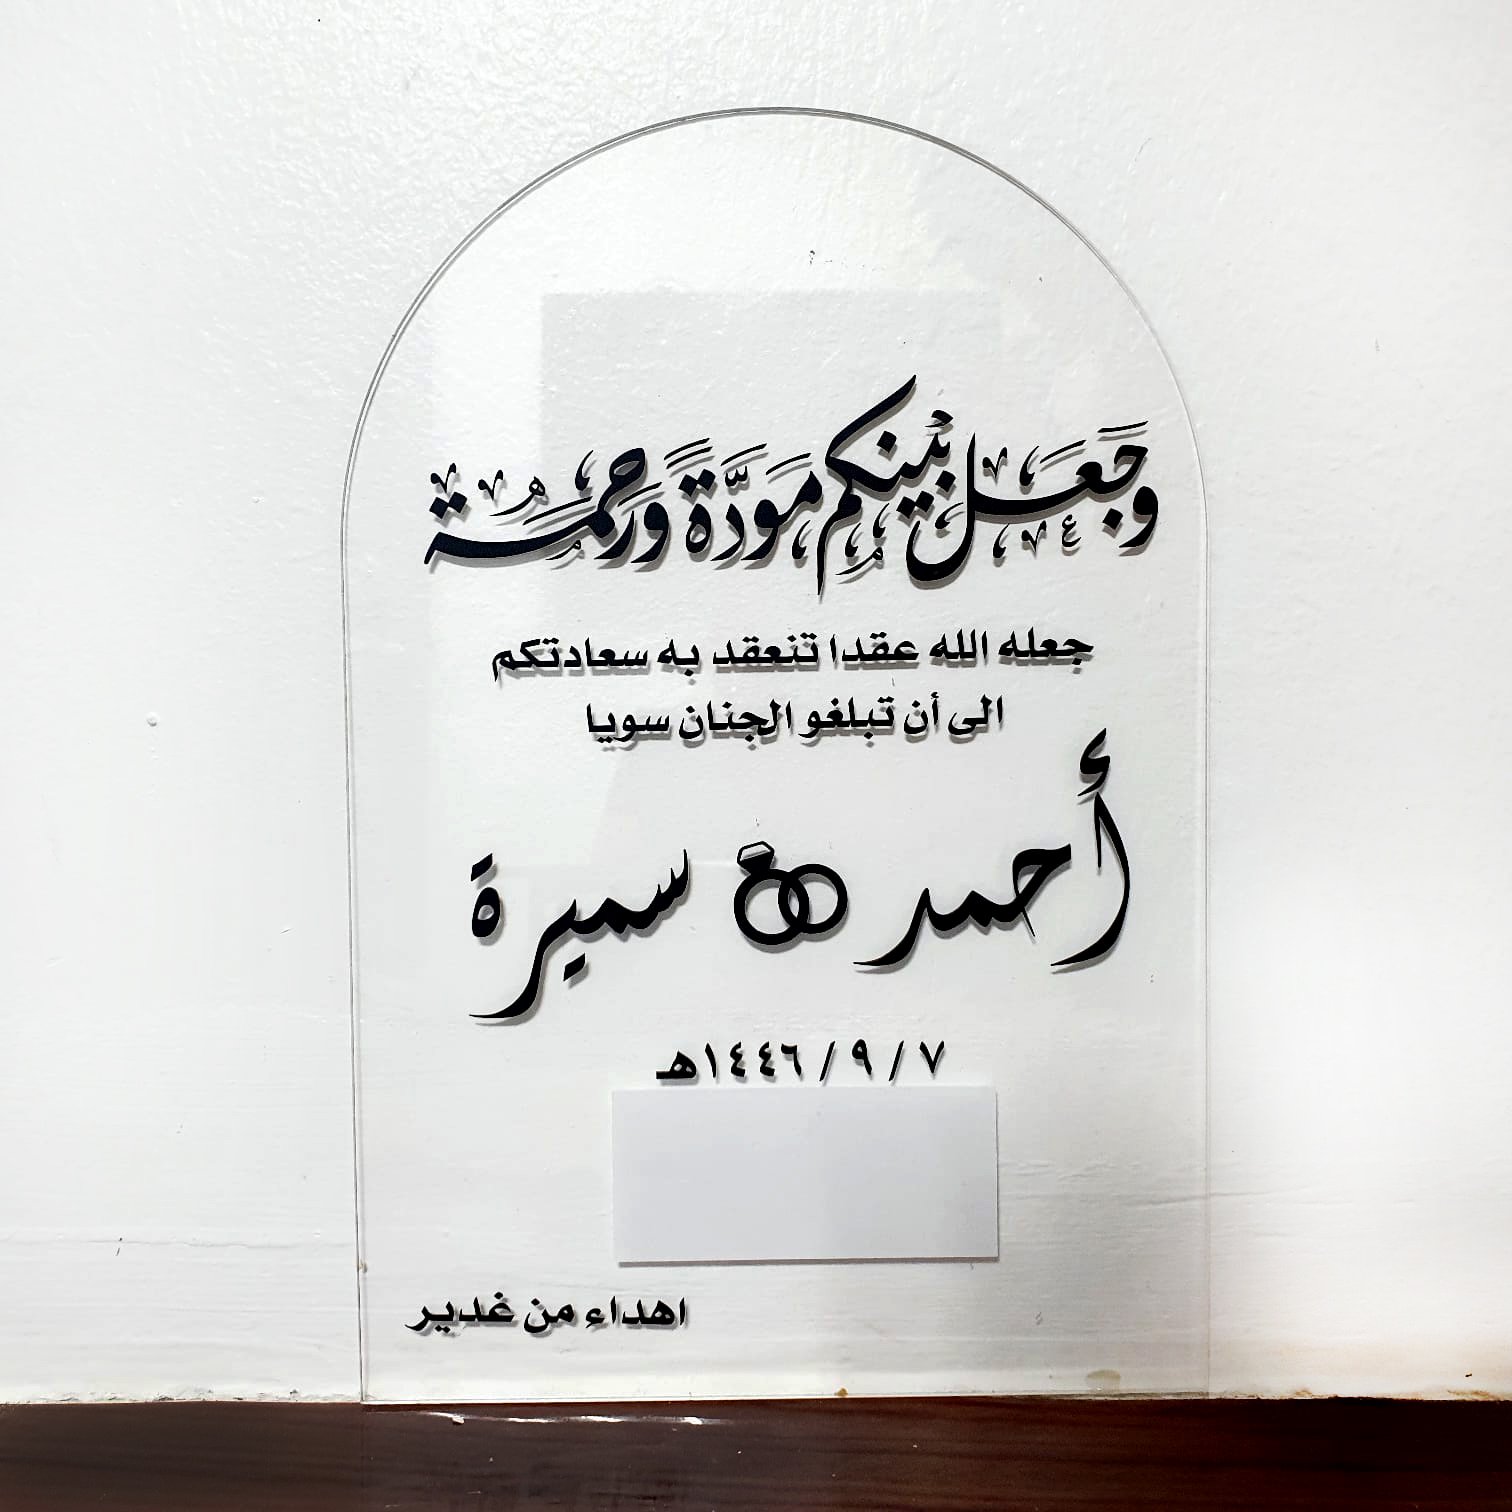 وَجَعَلَ بَيْنَكُم مَوَدَّةً وَرَحْمَةً
جعله الله عقدا تنعقد به سعادتكم
الى أن تبلغو الجنان سويا
أحمد سميرة
٧ / ٩ / ١٤٤٦هـ
اهداء من غدير